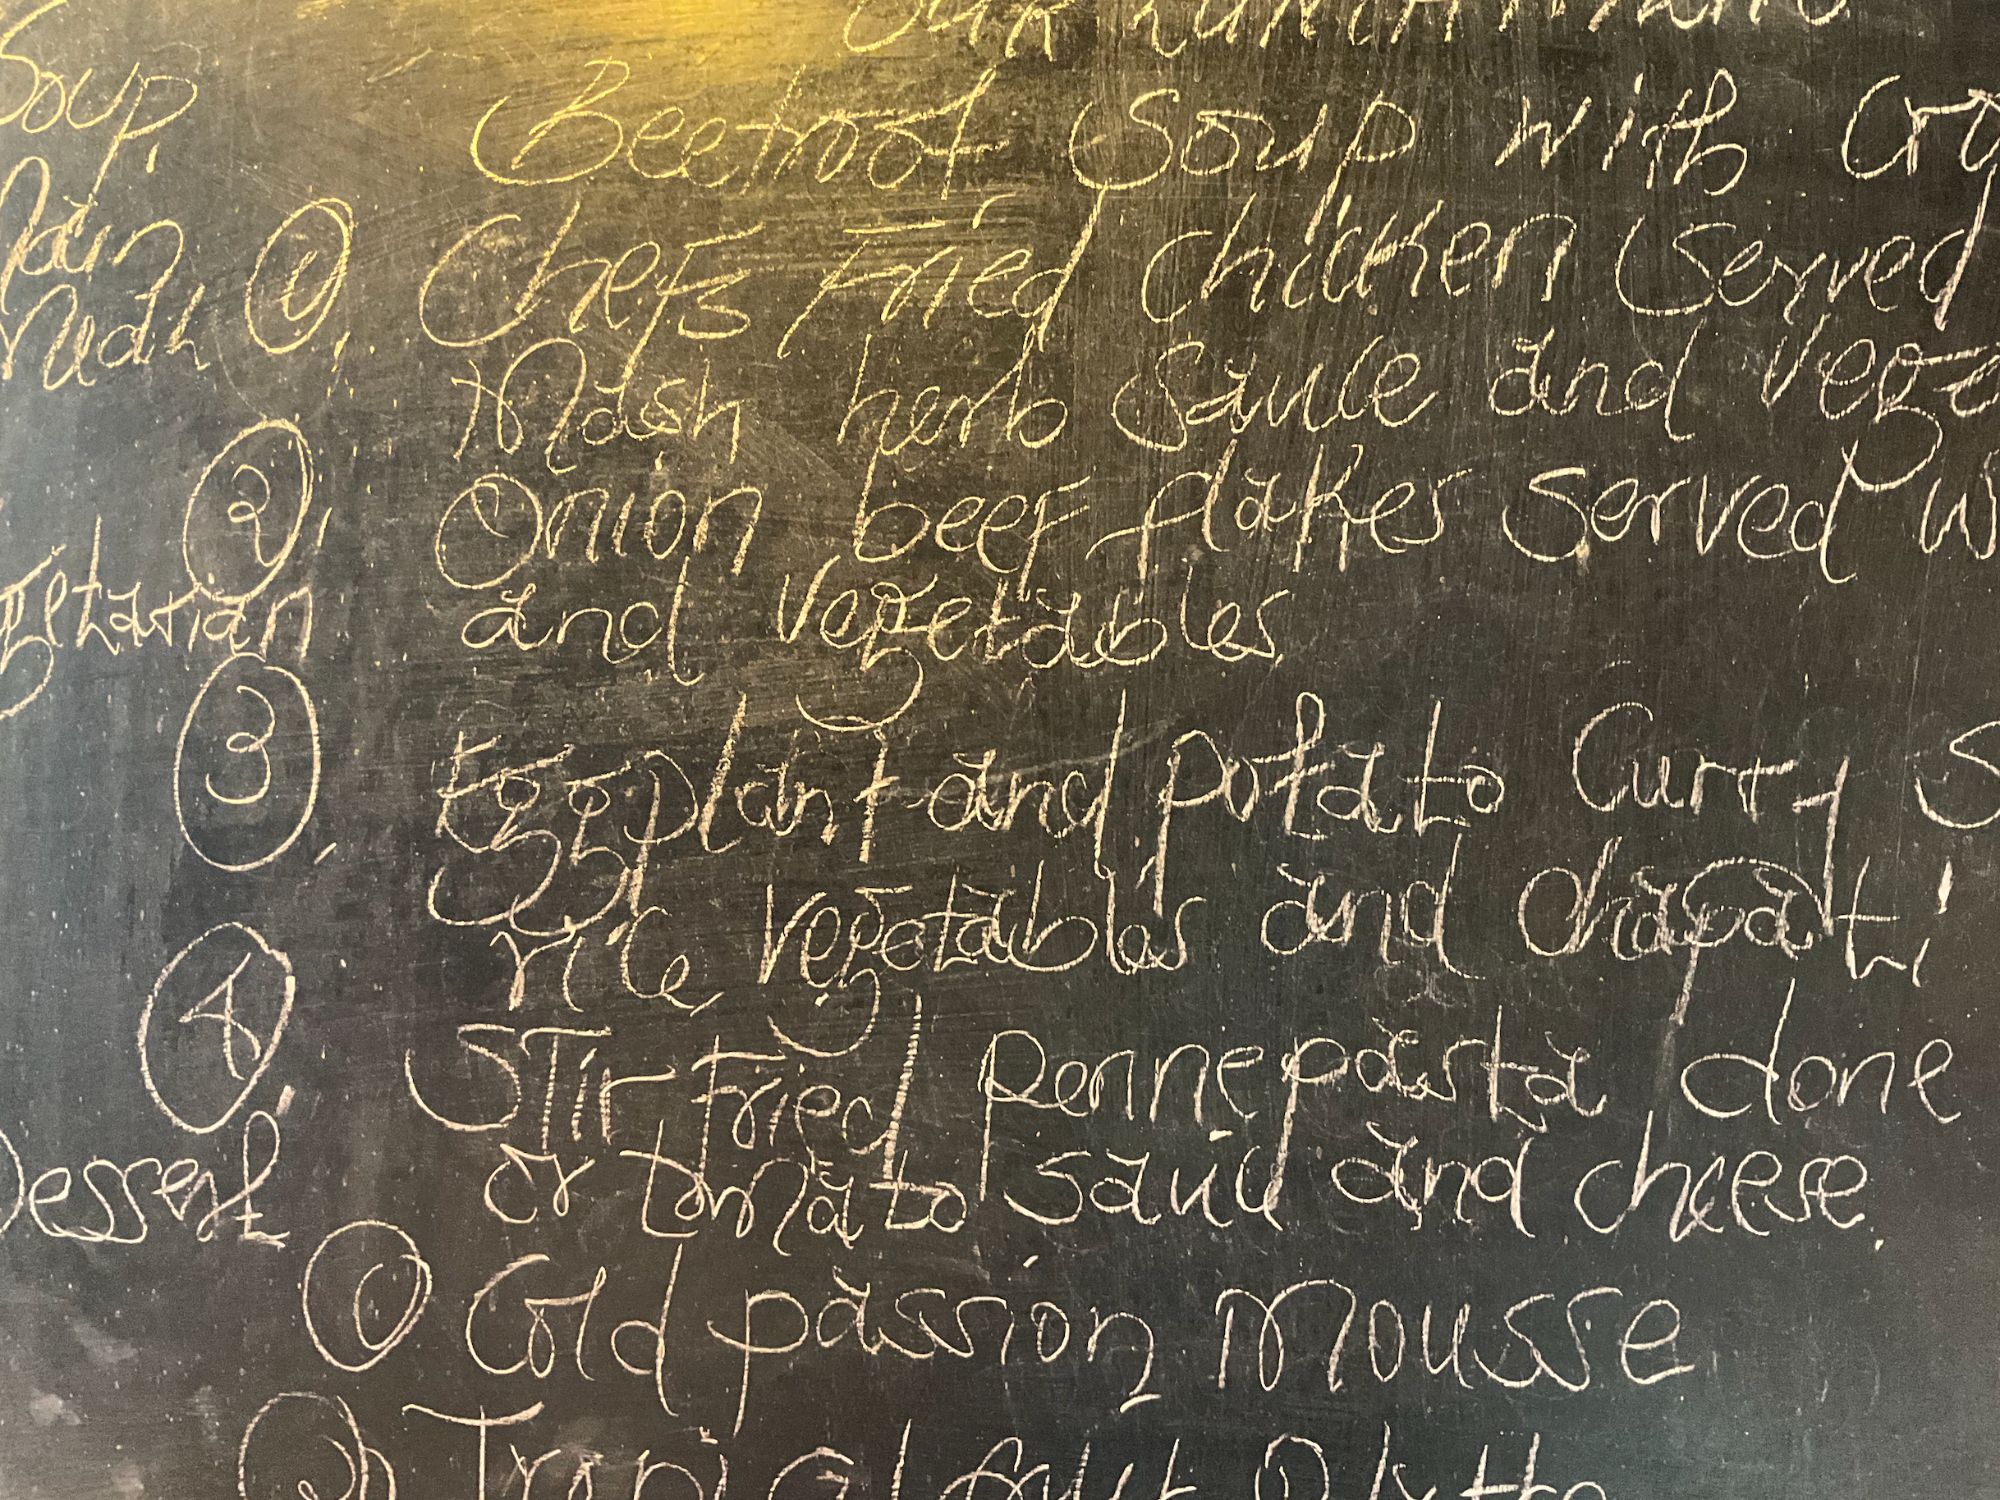 Our
Soup Beetroot Soup with
Main 1, Chefs Fried Chicken Served
Mash herb sauce and Vege
2, Onion beef flakes Served w
getarian and Vegetables
3, Eggplant and potato Curry S
rice Vegetables and chapati
4, Stir Fried Pennepasta done
Dessert or tomato sauce and cheese.
1 Cold passion Mousse
2 Tropical fruit